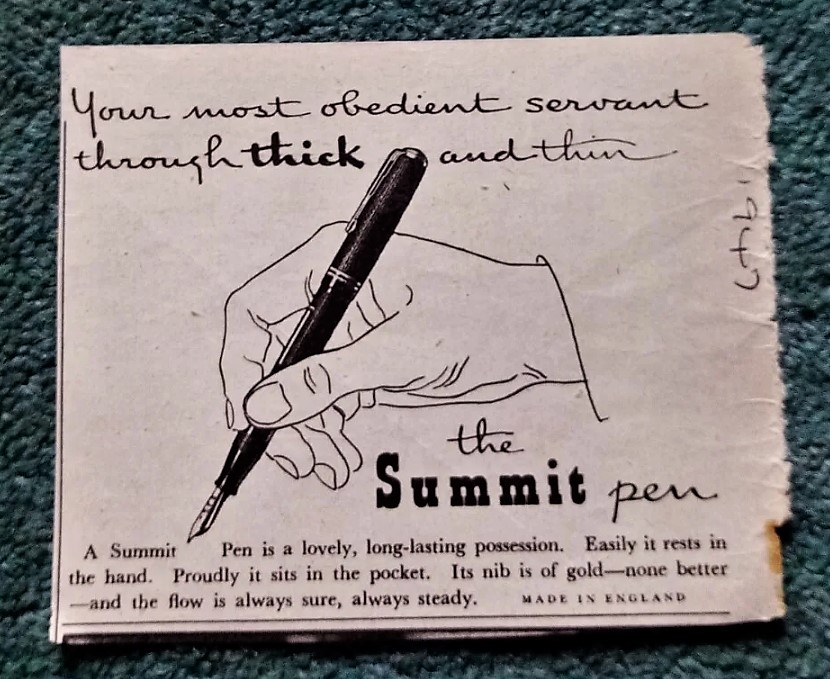 Your most obedient servant
through thick and thin
1947
the
Summit pen
A Summit Pen is a lovely, long-lasting possession. Easily it rests in
the hand. Proudly it sits in the pocket. Its nib is of gold—none better
—and the flow is always sure, always steady. MADE IN ENGLAND